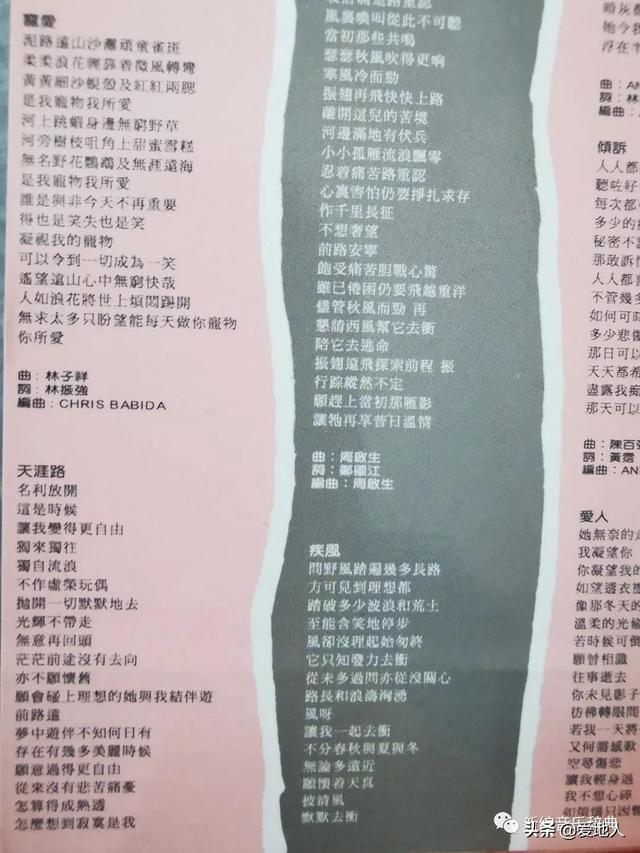 寵愛
泥路遠山沙灘頑童雀斑
柔柔浪花輕靠着微風轉彎
黃黃細沙蜆殼及紅紅兩腮
是我寵物我所愛
河上跳蝦身邊無窮野草
河旁樹枝咀角上甜蜜雪糕
無名野花鸚鵡及無涯遠海
是我寵物我所愛
誰是與非今天不再重要
得也是笑失也是笑
凝視我的寵物
可以令到一切成為一笑
遙望遠山心中無窮快哉
人如浪花將世上煩悶踢開
無求太多只盼望能每天做你寵物
你所愛
曲：林子祥
詞：林振強
編曲：CHRIS BABIDA
天涯路
名利放開
這是時候
讓我變得更自由
獨來獨往
獨自流浪
不作虛榮玩偶
拋開一切默默地去
光輝不帶走
無意再回頭
茫茫前途沒有去向
亦不願懷舊
願會碰上理想的她與我結伴遊
前路遠
夢中遊伴不知何日有
存在有幾多美麗時候
願意過得更自由
從來沒有悲苦痛憂
怎算得成熟透
怎麼想到寂寞是我
風裏喚叫從此不可聽
當初那些共鳴
瑟瑟秋風吹得更响
寒風冷而勁
振翅再飛快快上路
離開這兒的苦境
河邊滿地有伏兵
小小孤雁流浪飄零
忍着痛苦路重認
心裏害怕仍要掙扎求存
作千里長征
不想奢望
前路安寧
飽受痛苦胆戰心驚
雖已倦困仍要飛越重洋
儘管秋風而勁 再
懇請西風幫它去衝
陪它去逃命
振翅遠飛探索前程 振
行踪縱然不定
願趕上當初那雁影
讓牠再享昔日溫情
曲：周啟生
詞：鄭國江
編曲：周啟生
疾風
問野風踏遍幾多長路
方可見到理想都
踏破多少波浪和荒土
至能含笑地停步
風卻沒理起始勿終
它只知發力去衝
從未多過問亦從沒關心
路長和浪濤洶湧
風呀
讓我一起去衝
不分春秋與夏與冬
無論多遠近
願懷着天真
披清風
默默去衝
她令我
浮在半
曲：AN
詞：林
編曲：
傾訴
人人都
聽咗好
每次都
多少的
秘密不
那敢訴
人人都
不管幾
如何可
多少悲
那日可
天天都
盡露我
那天可以
曲：陳百
詞：黃霑
編曲：AN
愛人
她無奈的走
我凝望你
你凝望我的
如望透衣
像那冬天的
溫柔的光
若時候可倒
願曾相識
往事逝去
你未見影子
彷彿轉眼間
若我一天將
又何需感歎
空尋傷悲
讓我輕身退
我不想心碎
新編音乐辞典
头条 @爱地人